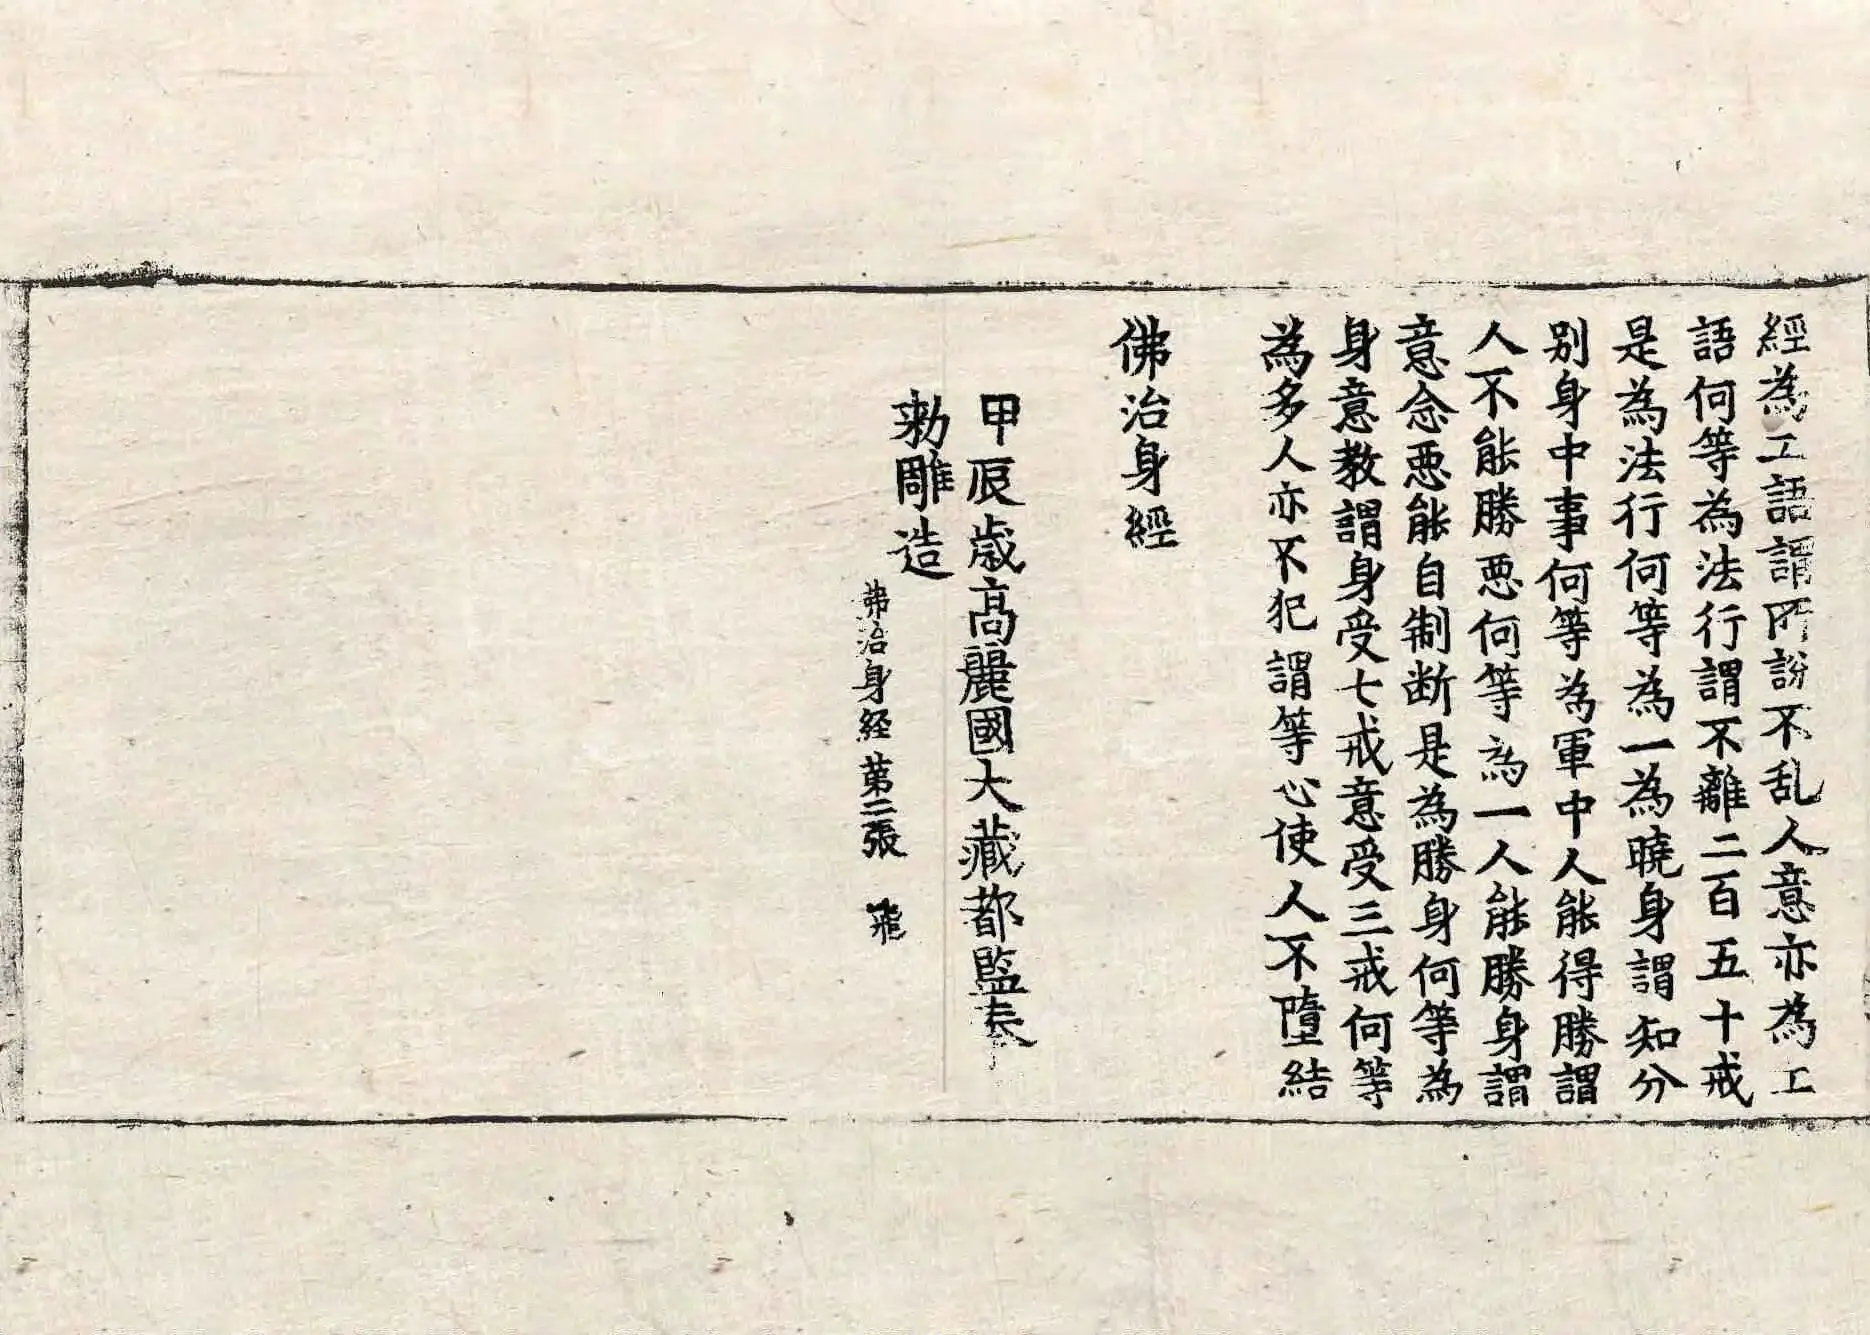 經為工語謂所說不乱人意亦為工
語何等為法行謂不離二百五十戒
是為法行何等為一為曉身謂知分
别身中事何等為軍中人能得勝謂
人不能勝惡何等為一人能勝身謂
意念惡能自制断是為勝身何等為
身意教謂身受七戒意受三戒何等
為多人亦不犯謂等心使人不墮結
佛治身經
甲辰歲高麗國大藏都監奉
勑雕造
弗治身経 第三張 飛